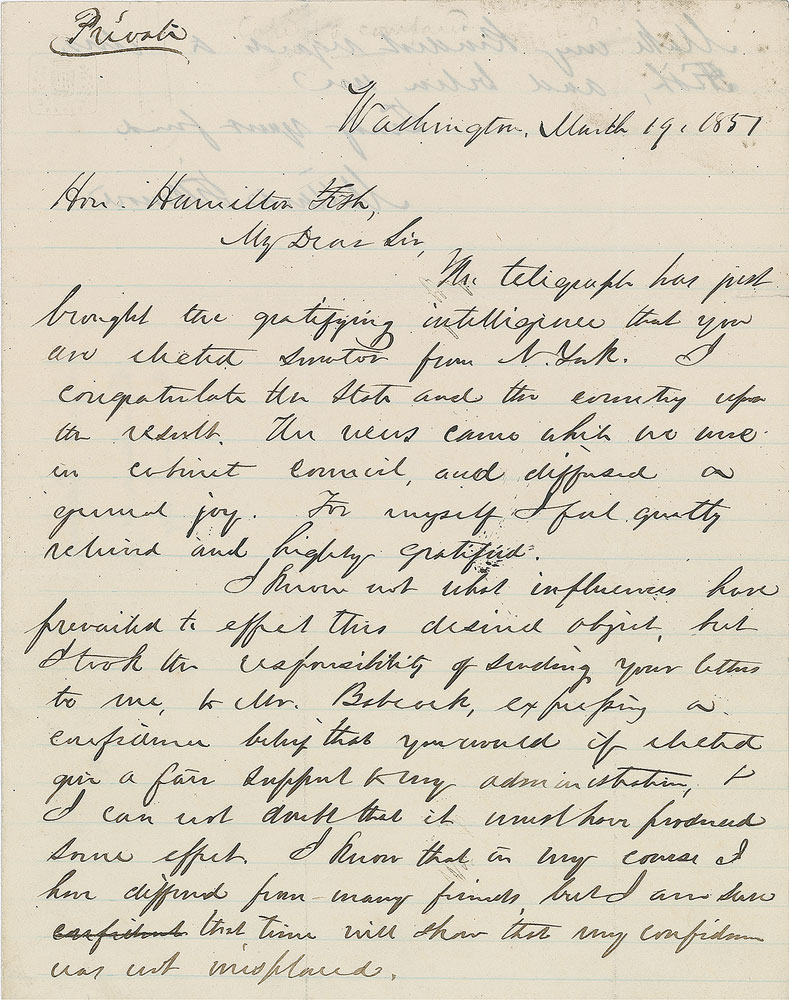 Private
Washington, March 19, 1851
Hon. Hamilton Fish,
My Dear Sir,
The telegraph has just
brought the gratifying intelligence that you
are elected senator from N. York. I
congratulate the State and the country upon
the result. The news came while we were
in cabinet council, and diffused a
general joy. For myself I feel greatly
relieved and highly gratified.
I know not what influences have
prevailed to effect this desired object, but
I took the responsibility of sending your letters
to me, to Mr. Babcock, expressing a
confidence belief that you would if elected
give a fair support to my administration, &
I can not doubt that it must have produced
some effect. I know that in my course I
have differed from many friends, but I am sure
confident that time will show that my confidence
was not misplaced.